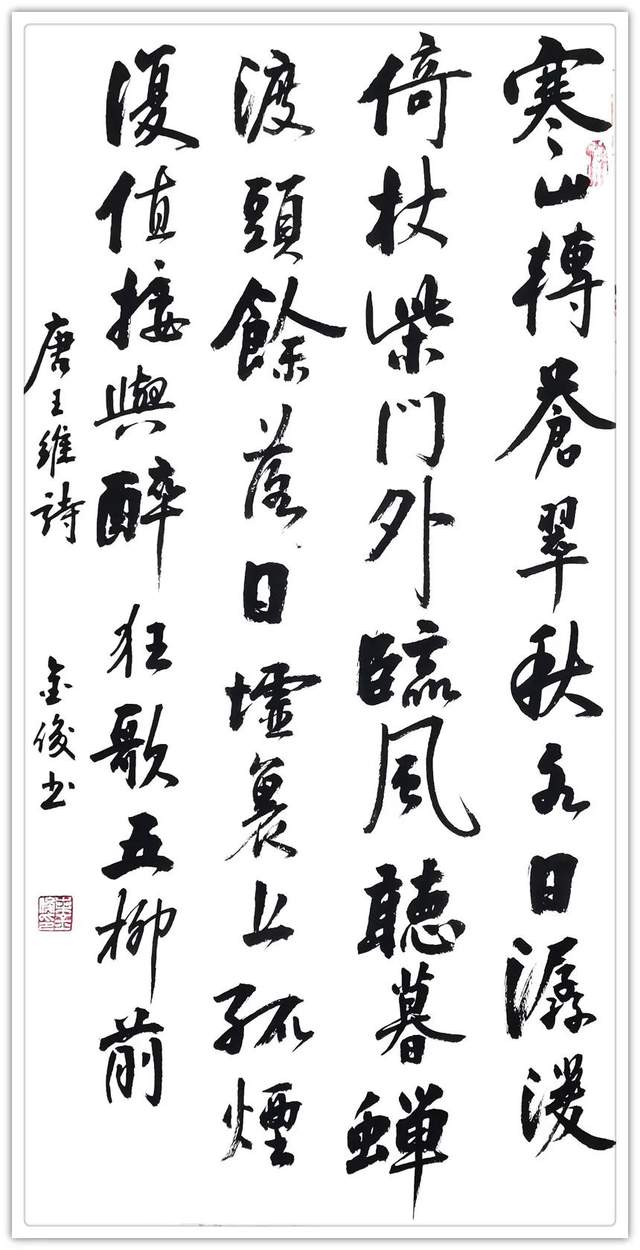 寒山轉蒼翠秋水日潺湲
倚杖柴門外臨風聽暮蟬
渡頭餘落日墟裏上孤煙
復值接與醉狂歌五柳前
唐王維詩 金俊书